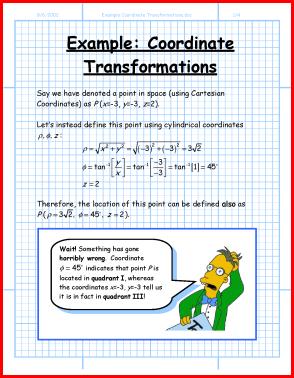 9/6/2005 Example Coordinate Transformations.doc 1/4
Example: Coordinate
Transformations
Say we have denoted a point in space (using Cartesian
Coordinates) as P(x=-3, y=-3, z=2).
Let's instead define this point using cylindrical coordinates
ρ, φ, z :
ρ = √(x² + y²) = √((-3)² + (-3)²) = 3√2
φ = tan⁻¹[y/x] = tan⁻¹[-3/-3] = tan⁻¹[1] = 45°
z = 2
Therefore, the location of this point can be defined also as
P(ρ = 3√2, φ = 45°, z = 2).
Wait! Something has gone
horribly wrong. Coordinate
φ = 45° indicates that point P is
located in quadrant I, whereas
the coordinates x=-3, y=-3 tell us
it is in fact in quadrant III!